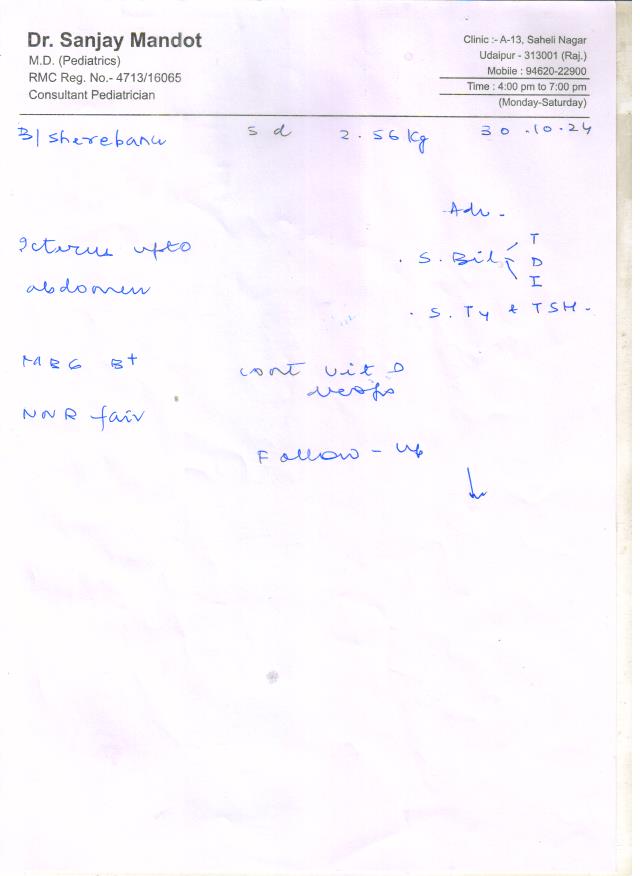 Dr. Sanjay Mandot
M.D. (Pediatrics)
RMC Reg. No.- 4713/16065
Consultant Pediatrician
Clinic :- A-13, Saheli Nagar
Udaipur - 313001 (Raj.)
Mobile : 94620-22900
Time : 4:00 pm to 7:00 pm
(Monday-Saturday)
B/ Sherebanu 5 d 2.56 Kg 30.10.24
Adv -
Icterus upto
abdomen
. S. Bil T
D
I
. S. T4 & TSH -
MBG B+
NNR fair
cont vit D
drops
Follow - up